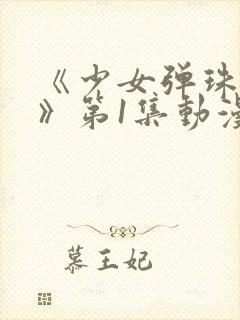 《少女弹珠
》第1集動漫
慕王妃